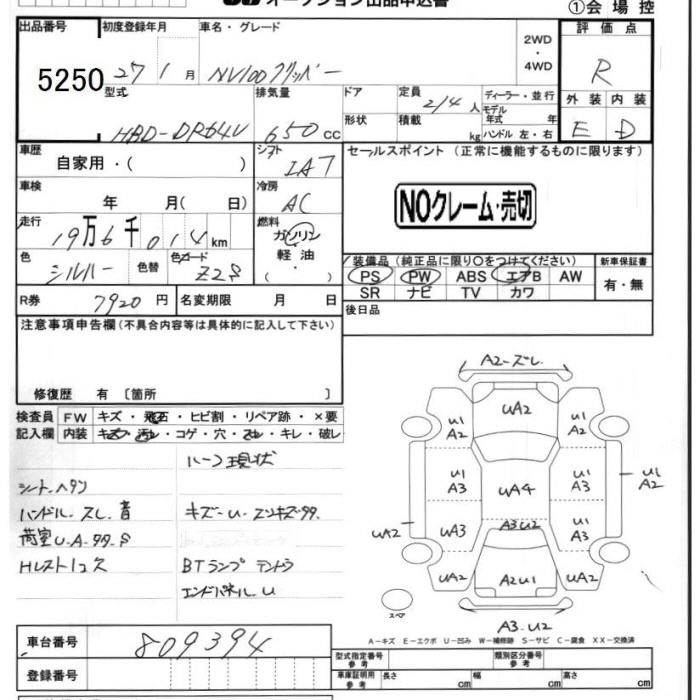 オークション出品申込書
①会場控
出品番号 初度登録年月 車名・グレード 2WD・4WD 評価点
5250 27 1月 NV100クリッパー R
型式 排気量 ドア 定員 2/4人 ディーラー・並行 外装 内装
モデル年式 年
HBD-DR64V 650cc 形状 積載 kg ハンドル 左・右 E D
車歴 自家用・( ) シフト IA7 セールスポイント (正常に機能するものに限ります)
車検 年 月( 日) 冷房 AC
NOクレーム・売切
走行 19万6千014km 燃料 ガソリン・軽油・( )
色 シルバー 色替 色コード Z2S
装備品(純正品に限り〇をつけてください) 新車保証書
PS PW ABS エアB AW 有・無
SR ナビ TV カワ
R券 7920円 名変期限 月 日
後日品
注意事項申告欄(不具合内容等は具体的に記入して下さい)
修復歴 有 〔箇所 〕
検査員 FW キズ・飛石・ヒビ割・リペア跡・×要
記入欄 内装 キズ・汚れ・コゲ・穴・スレ・キレ・破レ
ハーフ現状
シートヘタリ
ハンドル.スレ.音 キズ-U-
荷室U.A.
BTランプ
エンドパネル U
A2-スレ
UA2
U1 A2
U1 A2
U1 A3
U1 A3
UA4
U1 A2
UA2
UA3
A3U2
U1 A3
UA2
A2U1
UA2
スペア
A3.U2
A-キズ E-エクボ U-凹み W-補修跡 S-サビ C-腐食 XX-交換済
車台番号 809394
型式指定番号 参考 類別区分番号 参考
登録番号
車庫証明用 参考 長さ cm 幅 cm 高さ cm